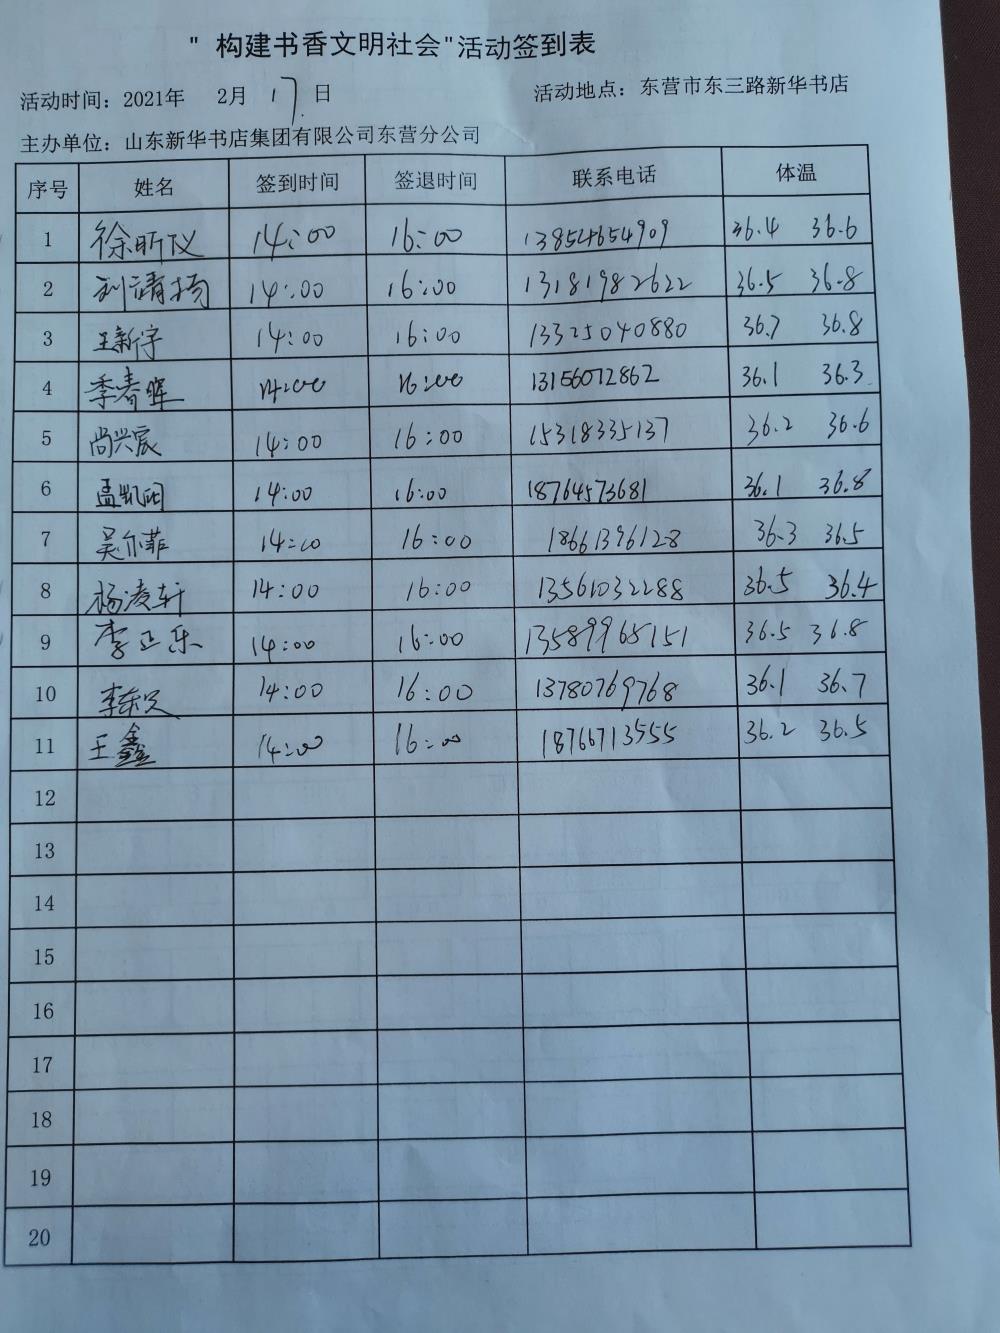 " 构建书香文明社会"活动签到表
活动时间：2021年 2月 17 日 活动地点：东营市东三路新华书店
主办单位：山东新华书店集团有限公司东营分公司
序号 姓名 签到时间 签退时间 联系电话 体温
1 徐昕仪 14:00 16:00 13854654909 36.4 36.6
2 刘靖扬 14:00 16:00 13181982622 36.5 36.8
3 王新宇 14:00 16:00 13325040880 36.7 36.8
4 季春晖 14:00 16:00 13156072862 36.1 36.3
5 尚兴宸 14:00 16:00 15318335137 36.2 36.6
6 孟凯 14:00 16:00 18764573681 36.1 36.8
7 吴尔菲 14:00 16:00 18661396128 36.3 36.5
8 杨凌轩 14:00 16:00 13561032288 36.5 36.4
9 李正乐 14:00 16:00 13589965151 36.5 36.8
10 李 14:00 16:00 13780769768 36.1 36.7
11 王鑫 14:00 16:00 18766713555 36.2 36.5
12
13
14
15
16
17
18
19
20